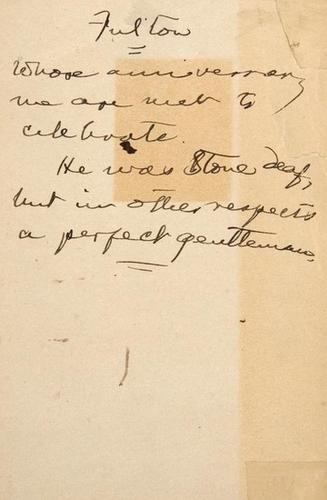 Fulton
Whose anniversary
we are met to
celebrate.
He was Stone deaf,
but in other respects
a perfect gentleman.